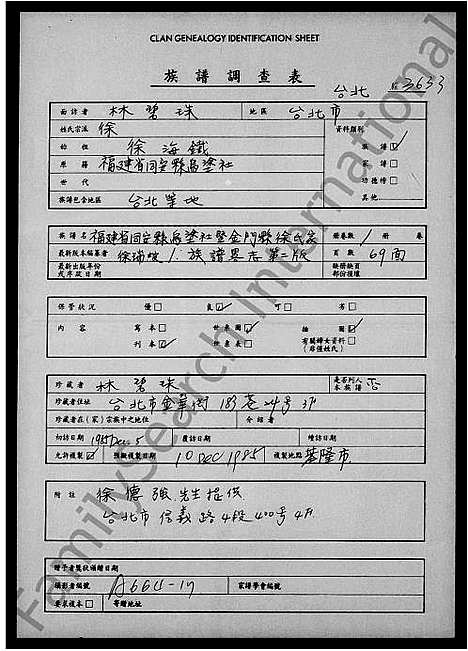 CLAN GENEALOGY IDENTIFICATION SHEET
族譜調查表
台北 3633
面訪者 林碧珠 地區 台北市
姓氏宗派 徐 資料類別
始祖 徐海鐵 族譜☑
原籍 福建省同安縣烏塗社 家譜□
世代 功德榜□
族譜包含地區 台北等地 其他
族譜名 福建省同安縣烏塗社暨金門縣徐氏宗 冊卷數 1 冊 卷
最新版本編纂者 徐瑞岐 / 族譜畧志第二版 頁數 69面
最新出版年份或序跋日期 缺冊缺頁部份損壞
保管狀況 優□ 良☑ 可□ 劣□
內容 寫本□ 世系圖☑ 插圖☑
刊本☑ 世系表□ 有關婦女資料□(看僅姓氏)
珍藏者 林碧珠 是否列入本族譜 否
珍藏者住址 台北市金華街183巷24號3F
珍藏者在(家)宗族中之地位 介紹者
初訪日期 1985 Dec. 5 覆訪日期 續訪日期
允許複製☑ 預擬複製日期 10 DEC 1985 複製地點 基隆市
附註 徐德 先生提供
台北市信義路4段400号4F.
贈予者獎狀頒贈日期
攝影者編號 A664-17 家譜學會編號
要求複本□ 寄贈地址
FamilySearch International